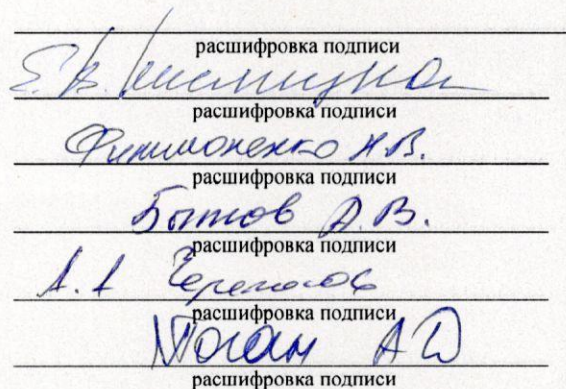 расшифровка подписи
Е.В.
расшифровка подписи
Филимоненко Н.В.
расшифровка подписи
Бытов Д.В.
расшифровка подписи
А.А
расшифровка подписи
А Д
расшифровка подписи